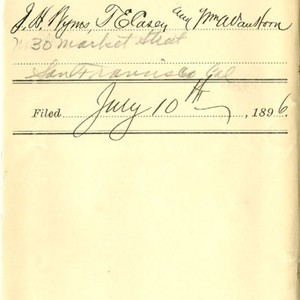 J. H. Nynos, T E Casey and Wm A Van Horn
30 Market Street
San Francisco Cal
Filed July 10th, 1896.